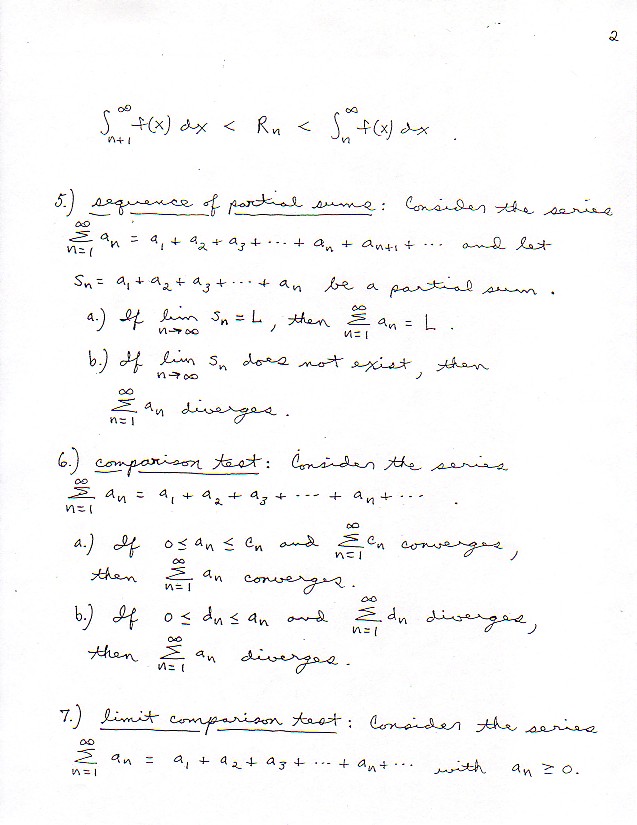 2
∫_{n+1}^{∞} f(x) dx < R_n < ∫_{n}^{∞} f(x) dx .
5.) sequence of partial sums : Consider the series
∑_{n=1}^{∞} a_n = a_1 + a_2 + a_3 + ··· + a_n + a_{n+1} + ··· and let
S_n = a_1 + a_2 + a_3 + ··· + a_n be a partial sum .
a.) If lim_{n→∞} S_n = L , then ∑_{n=1}^{∞} a_n = L .
b.) If lim_{n→∞} S_n does not exist , then
∑_{n=1}^{∞} a_n diverges .
6.) comparison test : Consider the series
∑_{n=1}^{∞} a_n = a_1 + a_2 + a_3 + ··· + a_n + ··· .
a.) If 0 ≤ a_n ≤ c_n and ∑_{n=1}^{∞} c_n converges ,
then ∑_{n=1}^{∞} a_n converges .
b.) If 0 ≤ d_n ≤ a_n and ∑_{n=1}^{∞} d_n diverges ,
then ∑_{n=1}^{∞} a_n diverges .
7.) limit comparison test : Consider the series
∑_{n=1}^{∞} a_n = a_1 + a_2 + a_3 + ··· + a_n + ··· with a_n ≥ 0 .